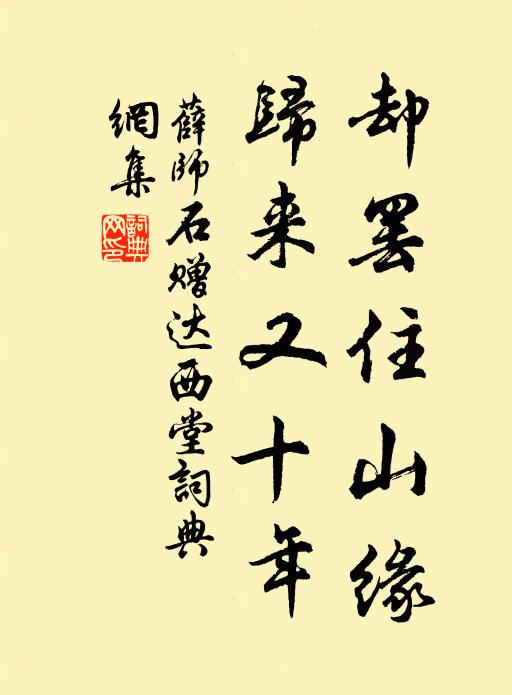 却罢住山缘
歸来又十年
薛师石赠达西堂詞典
網集
詞典
网印